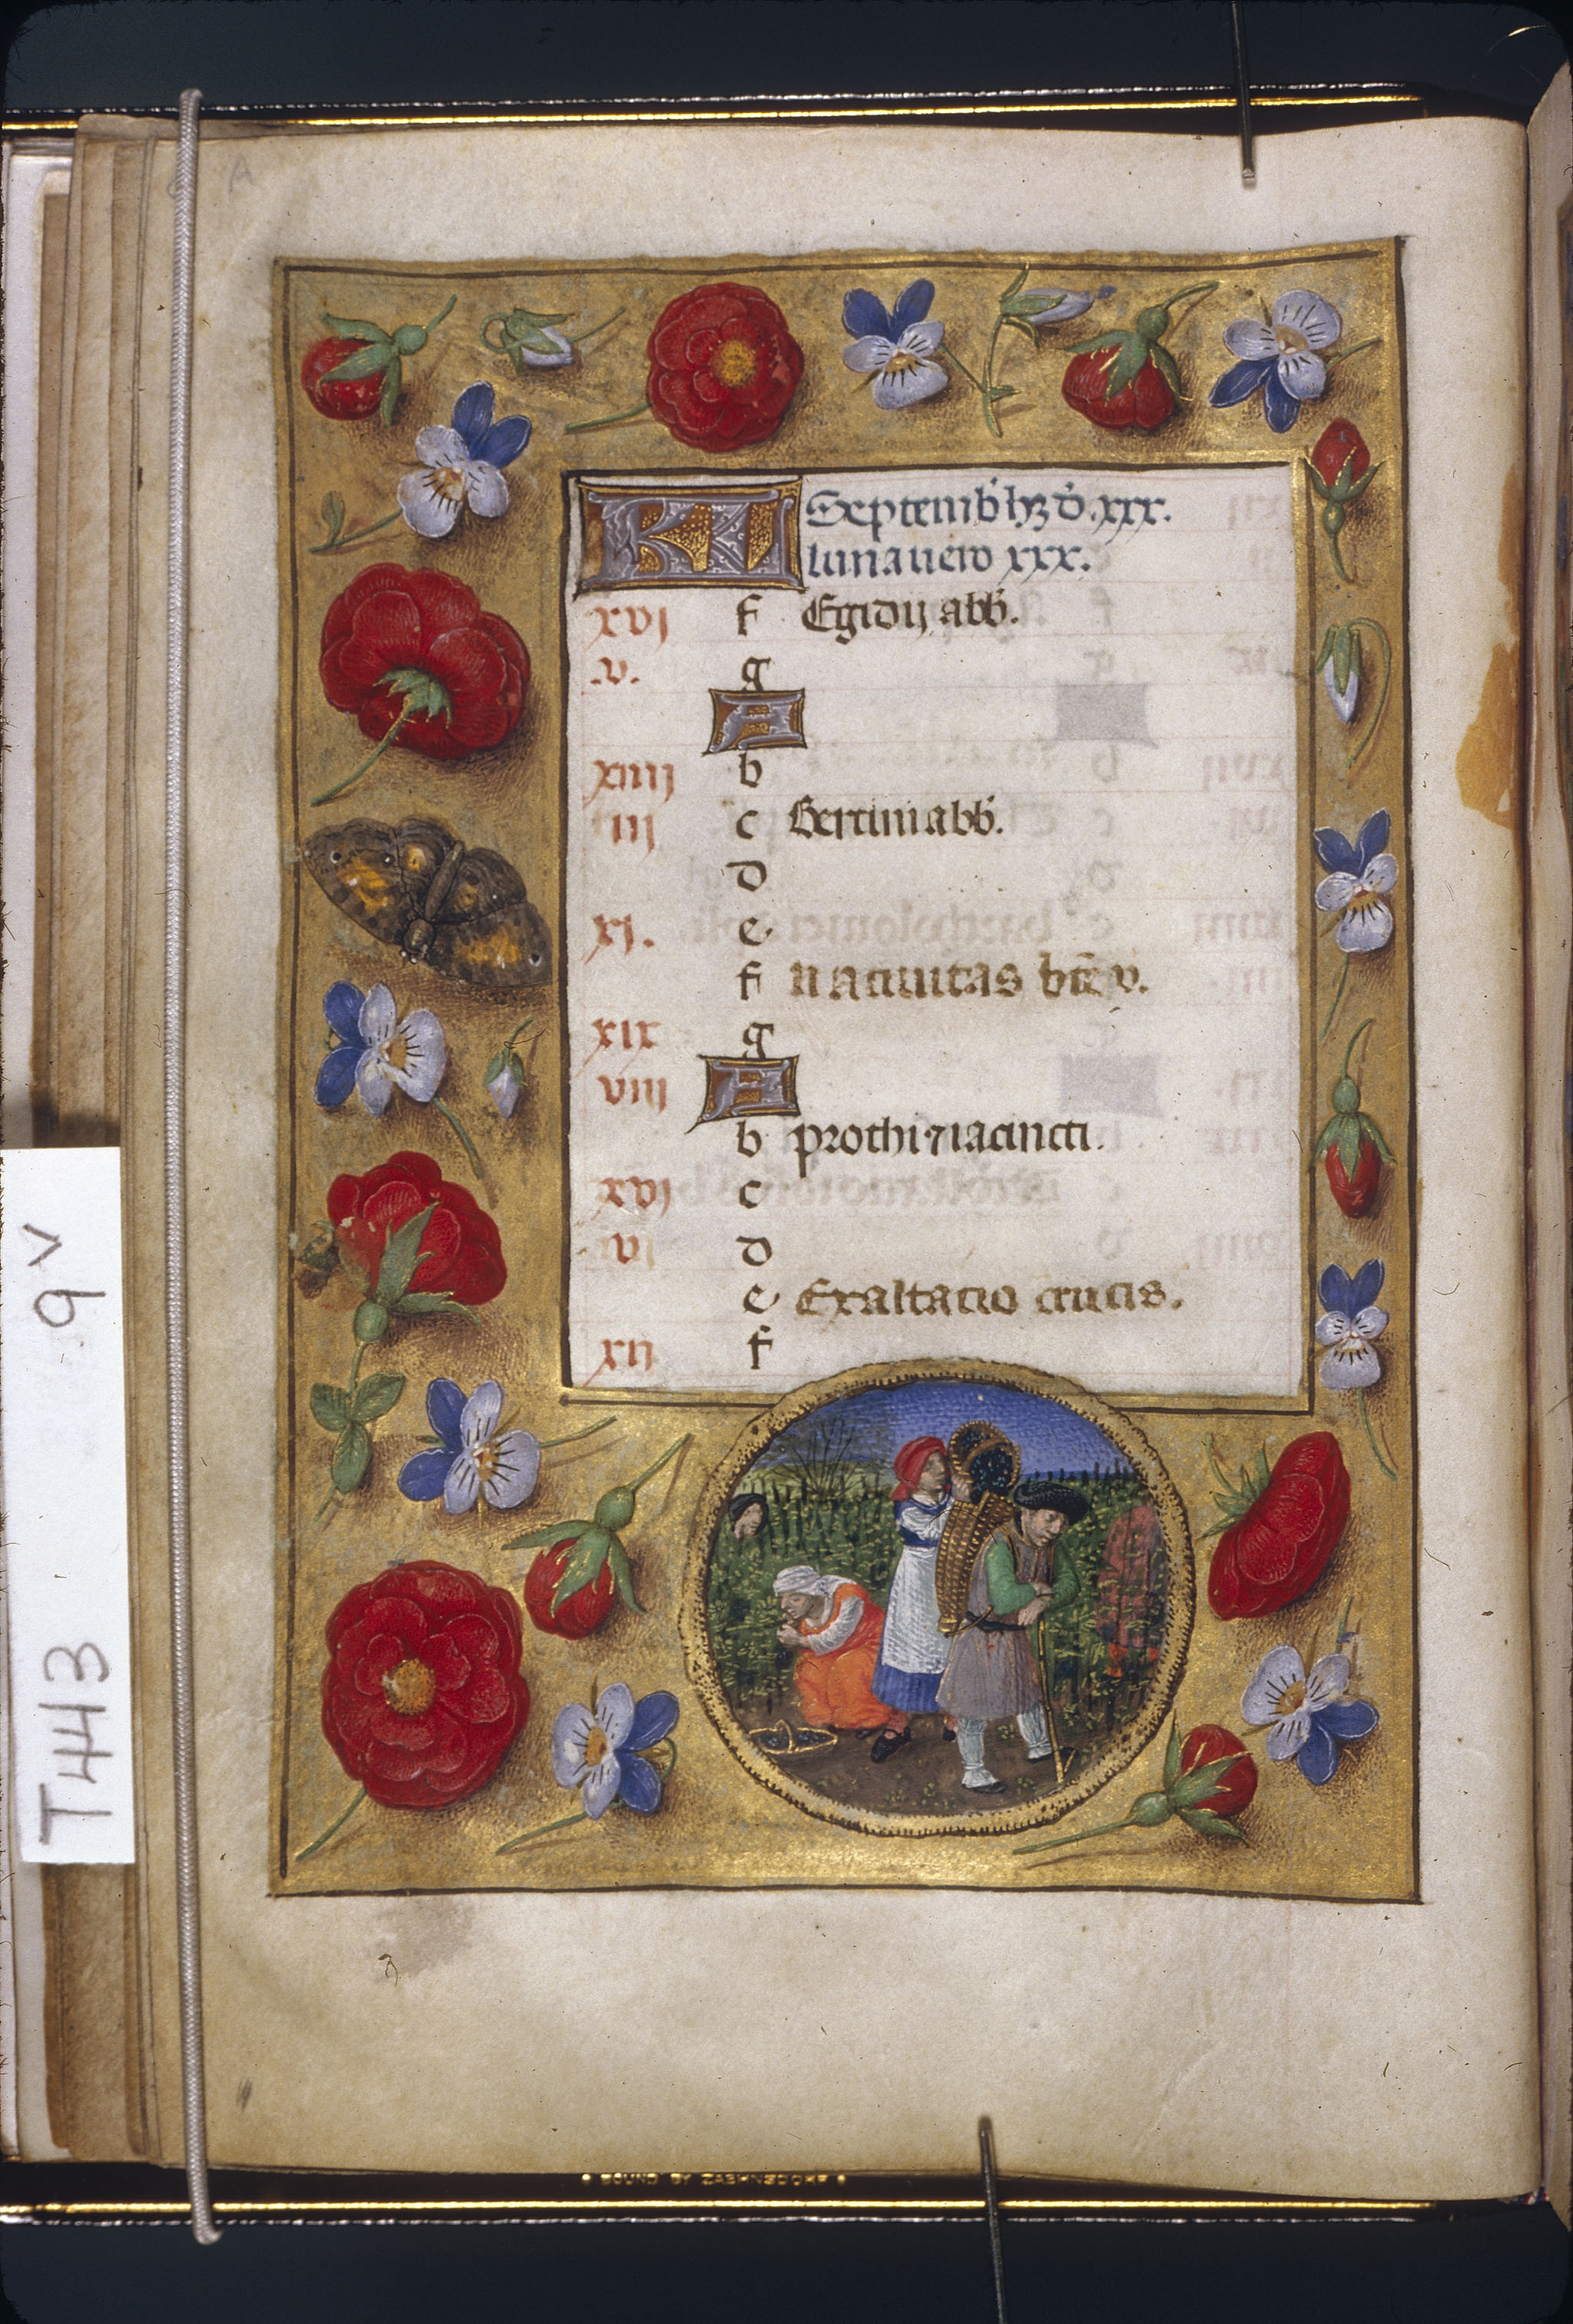 KL Septemb' hz d'. xxx.
luna uero xxx.
xvj f Egidij abb'.
.v. g
A
xiiij b
iij c Bertini abb'.
d
xj. e
f Natiuitas bt̄e v.
xix g
viij A
b prothi ⁊ iacincti.
xvj c
vj d
e Exaltacio crucis.
xij f
T443 9v
BOUND BY ZAEHNSDORF